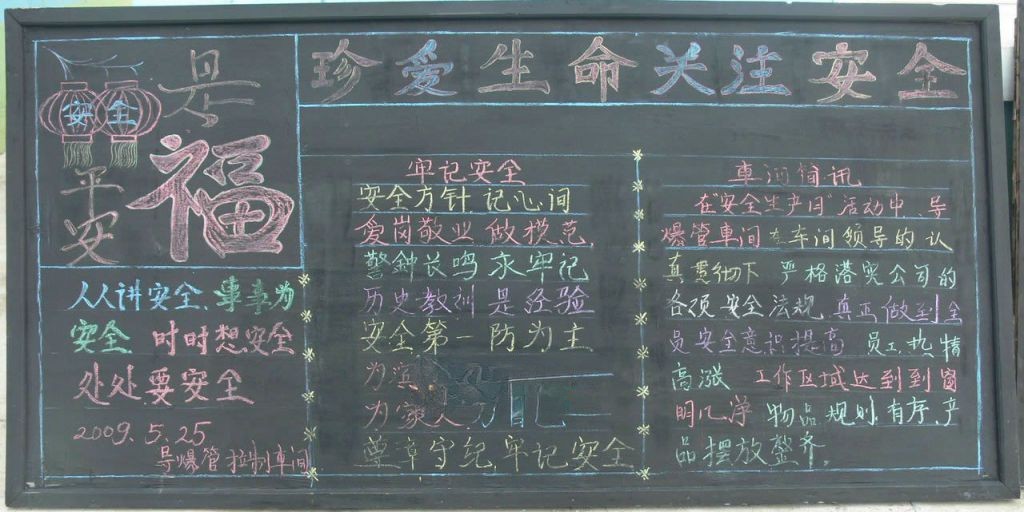 珍爱生命关注安全
安全
平安
是
福
人人讲安全、事事为
安全 时时想安全
处处要安全
2009.5.25
导爆管拉制车间
牢记安全
安全方针 记心间
爱岗敬业 做模范
警鐘长鸣 永牢记
历史教训 是经验
安全第一 防为主
为
为家人
遵章守纪 牢记安全
車间简讯
在"安全生产月"活动中、导
爆管車间 在车间领导的认
真贯彻下 严格落实公司的
各项安全法规 真正做到全
员安全意识提高 员工热情
高涨 工作区域达到到窗
明几净 物品规则有序产
品摆放整齐。